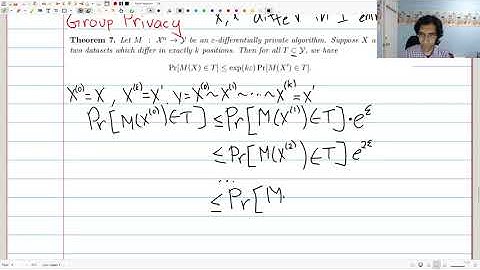 Group Privacy
X, X' differ in 1 ent
Theorem 7. Let M : Xⁿ → Y be an ε-differentially private algorithm. Suppose X a
two datasets which differ in exactly k positions. Then for all T ⊆ Y, we have
Pr[M(X) ∈ T] ≤ exp(kε) Pr[M(X') ∈ T].
X⁽⁰⁾=X , X⁽ᵏ⁾=X' X=X⁽⁰⁾~X⁽¹⁾~⋯~X⁽ᵏ⁾=X'
Pr[M(X⁽⁰⁾)∈T] ≤Pr[M(X⁽¹⁾)∈T]·e^ε
≤Pr[M(X⁽²⁾)∈T] e^{2ε}
...
≤Pr[M